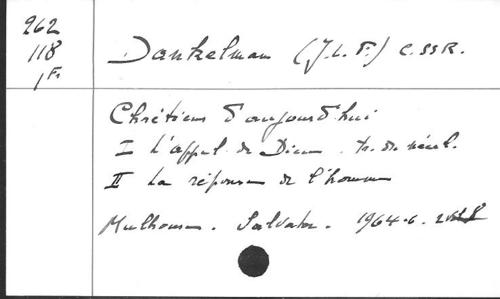 262
118
1Fr
Dankelman (J. L. F.) C.SS.R.
Chrétiens d'aujourd'hui
I L'appel de Dieu. tr. du néerl.
II La réponse de l'homme
Mulhouse. Salvator. 1964-6. 2 vol. 8